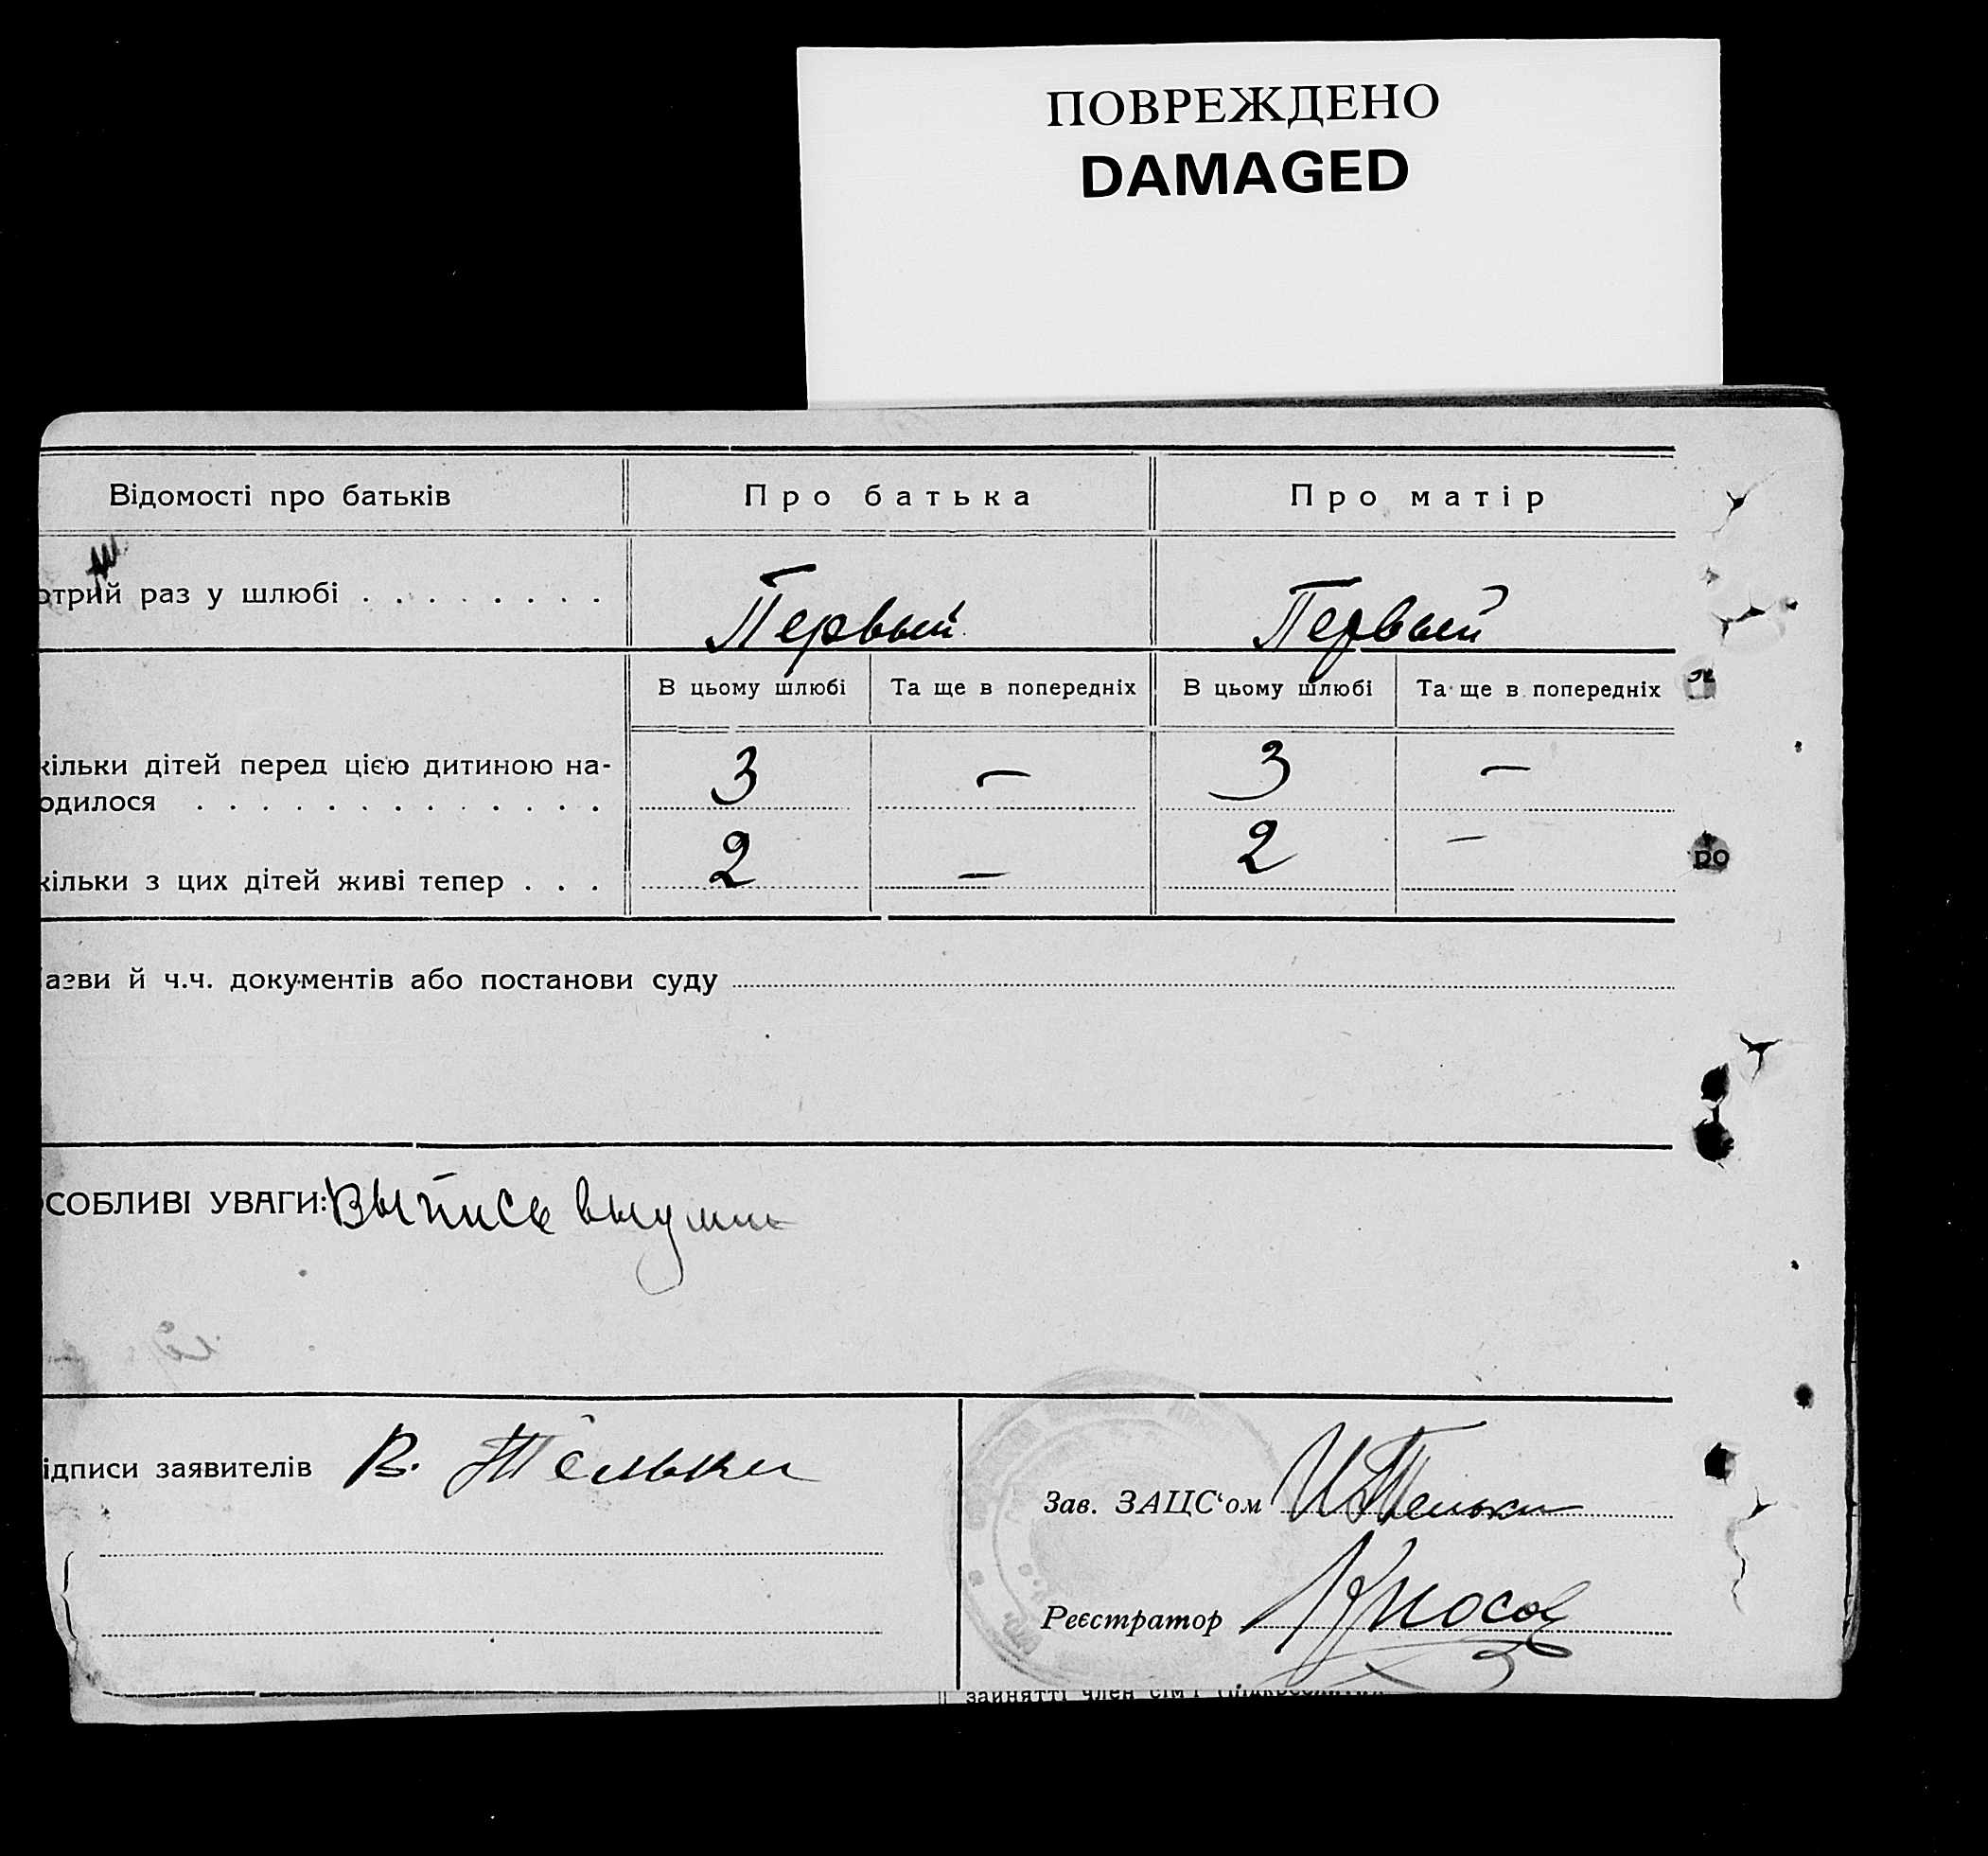 ПОВРЕЖДЕНО
DAMAGED
Відомості про батьків
Про батька
Про матір
отрий раз у шлюбі . . . . . . . .
Первый
Первый
В цьому шлюбі
Та ще в попередніх
В цьому шлюбі
Та ще в попередніх
кільки дітей перед цією дитиною на-
одилося . . . . . . . . . . . . .
3
—
3
—
кільки з цих дітей живі тепер . . .
2
—
2
—
азви й ч.ч. документів або постанови суду
СОБЛИВІ УВАГИ: Выпись
ідписи заявителів В.
Зав. ЗАЦС'ом
Реєстратор
ро
зайнятті член сім'ї